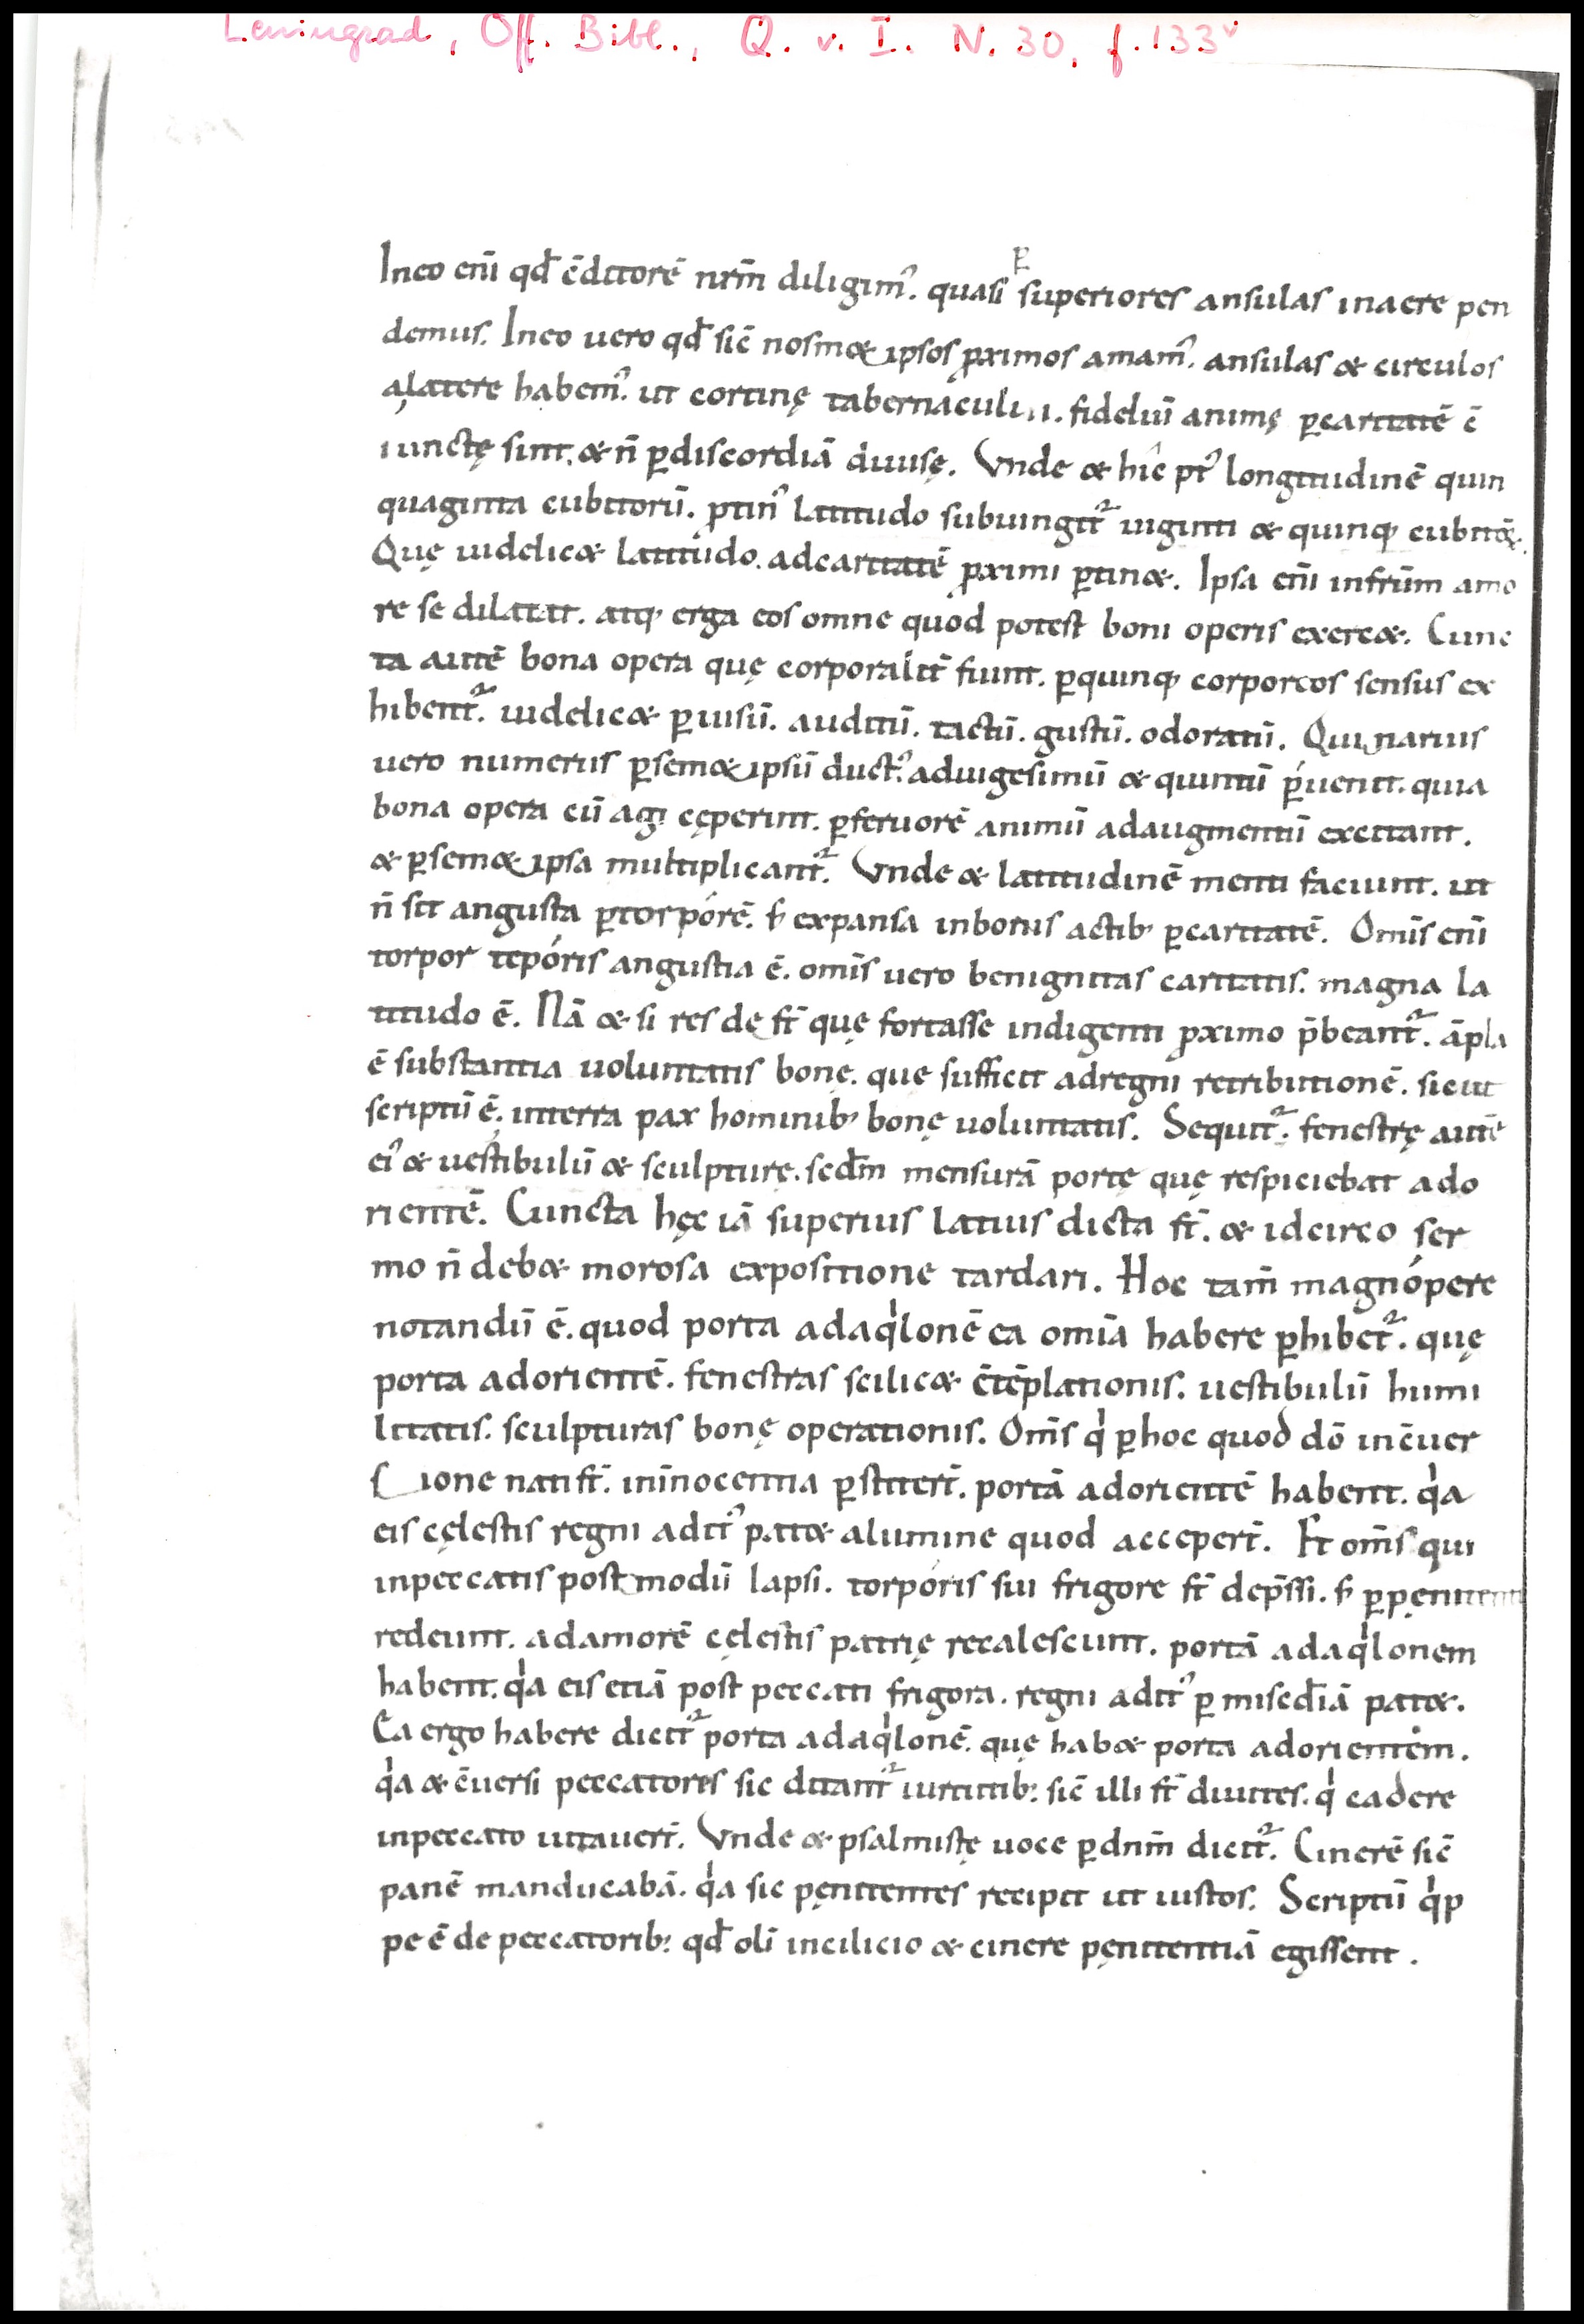 Leningrad, Off. Bibl., Q. v. I. N. 30, f. 133v
Ineo enī qđ c̄ditorē nr̄m diligim᾽. quasi ꝑ superiores ansulas inaere pen
demus. Ineo uero qđ sic̄ nosm& ipsos ꝓximos amam᾽. ansulas & circulos
alatere habem᾽. ut cortinę tabernaculi .i. fideliū animę ꝑcaritatē c̄
iunctę sint. & n̄ ꝑdiscordiā diuisę. Vnde & hic pt᾽ longitudinē quin
quaginta cubitorū. ꝓtin᾽ latitudo subiungit᷑ uiginti & quinq; cubitoꝝ.
Quę uidelic& latitudo. adcaritatē ꝓximi ꝑtin&. Ipsa enī infrm̄ amo
re se dilatat. atq; erga eos omne quod potest boni operis exerc&. Cunc
ta autē bona opera quę corporalit᷑ fiunt. ꝑquinq; corporeos sensus ex
hibent᷑. uidelic& ꝑuisū. auditū. tactū. gustū. odoratū. Quinarius
uero numerus ꝑsem&ipsū duct᾽ aduigesimū & quintū ꝑuenit. quia
bona opera cū agi cęperint. ꝑferuorē animū adaugmentū excitant.
& ꝑsem&ipsa multiplicant᷑. Vnde & latitudinē menti faciunt. ut
n̄ sit angusta ꝑtorpórē. s; expansa inbonis actib; ꝑcaritatē. Omīs enī
torpor tepóris angustia ē. omīs uero benignitas caritatis. magna la
titudo ē. Nā & si res dest̄ quę fortasse indigenti ꝓximo p̄beant᷑. āpla
ē substantia uoluntatis bonę. quę sufficit adregni retributionē. sicut
scriptū ē. interra pax hominib; bonę uoluntatis. Sequit᷑. fenestrę autē
ei᾽ & uestibulū & sculpturę. scdm̄ mensurā portę quę respiciebat ado
rientē. Cuncta hęc iā superius latius dicta st̄. & idcirco ser
mo n̄ deb& morosa expositione tardari. Hoc tam̄ magnópere
notandū ē. quod porta adaqͥlonē ea omīa habere ꝑhibet᷑. quę
porta adorientē. fenestras scilic& c̄tēplationis. uestibulū humi
litatis. sculpturas bonę operationis. Om̄s qͥ ꝑhoc quod dō inc̄uer
tione nati st̄. inīnocentia ꝑstiter̄. portā adorientē habent. qͥa
eis cęlestis regni adit᾽ pat& alumine quod acceper̄. Et om̄s qui
inpeccatis postmodū lapsi. torpóris sui frigore st̄ dep̄ssi. s; ꝑpęnitenti
redeunt. adamorē cęlestis patrię recalescunt. portā adaqͥlonem
habent. qͥa eis etiā post peccati frigora. regni adit᾽ ꝑ misedīā pat&.
Ea ergo habere dicit᷑ porta adaqͥlonē. quę hab& porta adorientem.
qͥa & c̄uersi peccatores sic ditant᷑ uirtutib; sic̄ illi st̄ diuites. qͥ cadere
inpeccato uitauer̄. Vnde & psalmistę uoce ꝑdnm̄ dicit᷑. Cinerē sic̄
panē manducabā. qͥa sic pęnitentes recipit ut iustos. Scriptū qͥp
pe ē de peccatorib; qđ olī incilicio & cinere pęnitentiā egissent.